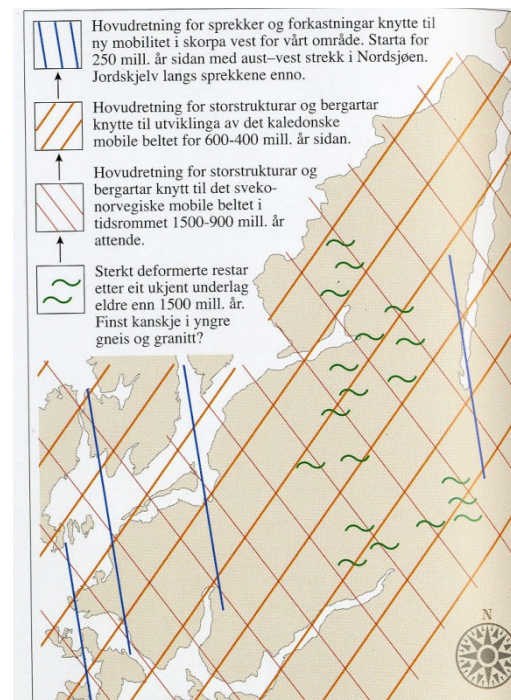 Hovudretning for sprekker og forkastningar knytte til
ny mobilitet i skorpa vest for vårt område. Starta for
250 mill. år sidan med aust–vest strekk i Nordsjøen.
Jordskjelv langs sprekkene enno.
Hovudretning for storstrukturar og bergartar
knytte til utviklinga av det kaledonske
mobile beltet for 600-400 mill. år sidan.
Hovudretning for storstrukturar og
bergartar knytt til det sveko-
norvegiske mobile beltet i
tidsrommet 1500-900 mill. år
attende.
Sterkt deformerte restar
etter eit ukjent underlag
eldre enn 1500 mill. år.
Finst kanskje i yngre
gneis og granitt?
N